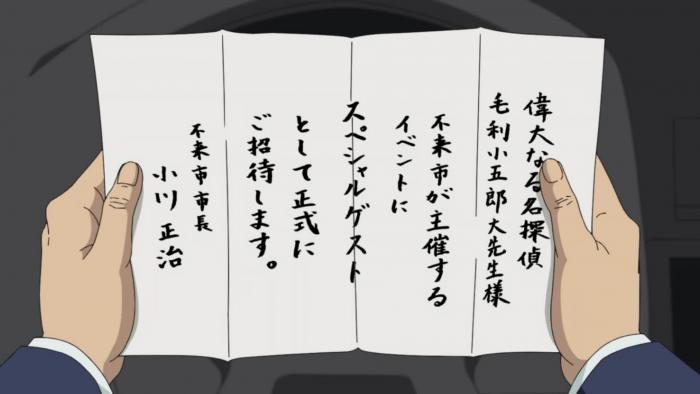 偉大なる名探偵
毛利小五郎大先生様
不来市が主催する
イベントに
スペシャルゲスト
として正式に
ご招待します。
不来市市長
小川正治